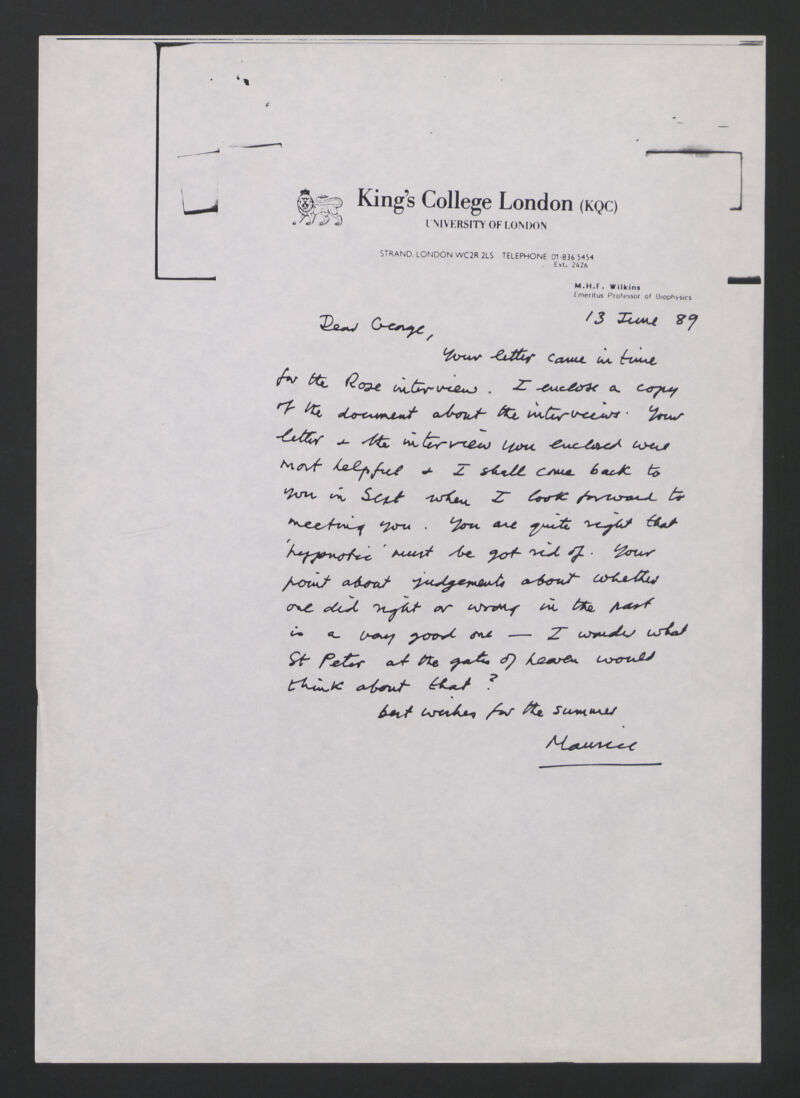 King's College London (KQC)
UNIVERSITY OF LONDON
STRAND, LONDON WC2R 2LS TELEPHONE 01-836 5454
Ext. 2426
M.H.F. Wilkins
Emeritus Professor of Biophysics
13 June 89
Dear George,
Your letter came in time
for the Rose interview. I enclose a copy
of the document about the interviews. Your
letter & the interview you enclosed were
most helpful & I shall come back to
you in Sept when I look forward to
meeting you. You are quite right that
'hypnotic' must be got rid of. Your
point about judgements about whether
one did right or wrong in the past
is a very good one — I wonder what
St Peter at the gates of heaven would
think about that?
best wishes for the summer
Maurice